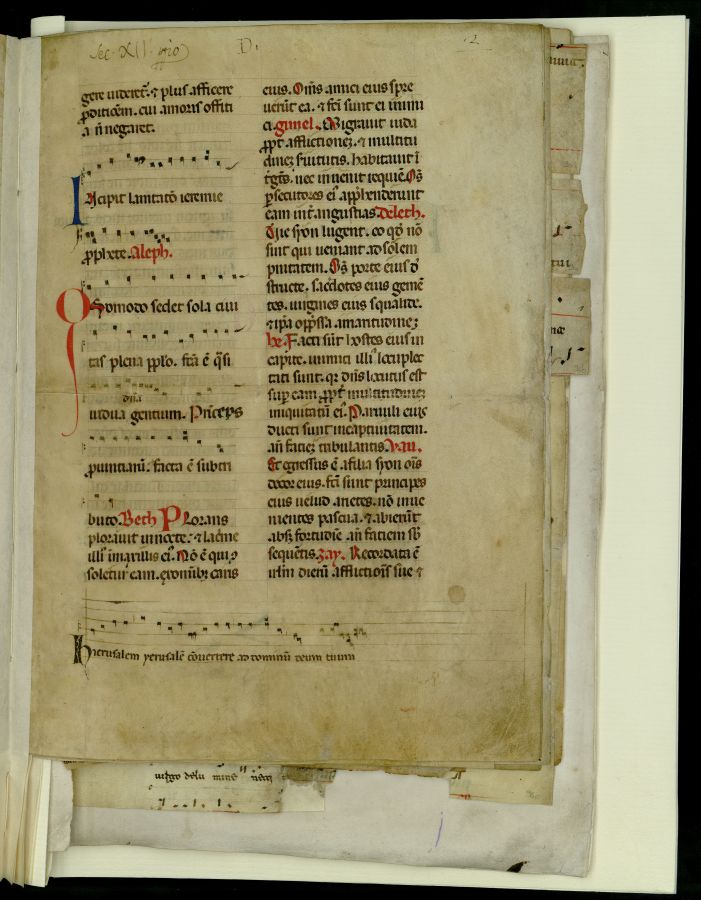 Sec. XII
D.
2
gere uideret͛. ⁊ plus afficere
ꝓditicēm. cui amoris offiti
a n̄ negaret.
Incipit lamtatō ieremie
ꝓphete. Aleph.
Quomodo sedet sola ciui
tas plena pplo. fta ē q̄si
dn̄a
uidua gentium. Princeps
ꝓuintiarū. facta ē subtri
buto. Beth Plorans
plorauit innocte. ⁊ lacͥme
illiˀ īmaxillis eiˀ. Nō ē qui
soletur eam. exomībꝫ caris
eius. Om̄s amici eius spre
uerūt ea. ⁊ fti sunt ei inimi
ci. gimel. Migrauit iuda
ꝓpt͛ afflictionez. ⁊ multitu
dinez s͛uitutis. habitauit ī
t͛ ḡtēs. nec inuenit requiē. Os̄
ꝑsecutores eiˀ app̄henderunt
eam int͛ angustias. Deleth.
Uie syon lugent. eo qđ nō
sint qui ueniant ad solem
pnitatem. Os̄ porte eius đ
structe. sac͛dotes eius gemē
tes. uirgines eius squalide.
⁊ ip̄a opp̄ssa amaritudinez
he. Facti sūt hostes eius in
capite. inimici illiˀ locuplec
tati sunt. qꝛ dn̄s locutus est
suꝑ eam ꝓpt͛ multitudinez
iniquitatū eiˀ. Paruuli eius
ducti sunt incaptiuitatem.
an̄ faciez tribulantis. Vau.
Et egressus ē afilia syon oīs
decor eius. fti sunt principes
eius uelud arietes. nō inue
nientes pascua. ⁊ abierūt
absꝫ fortudiē an̄ faciem sb̄
sequētis. zay. Recordata ē
irl̄m dierū afflictiōis sue ⁊
Hierusalem yerusalē cōuertere ad dominū deum tuum
uirgo